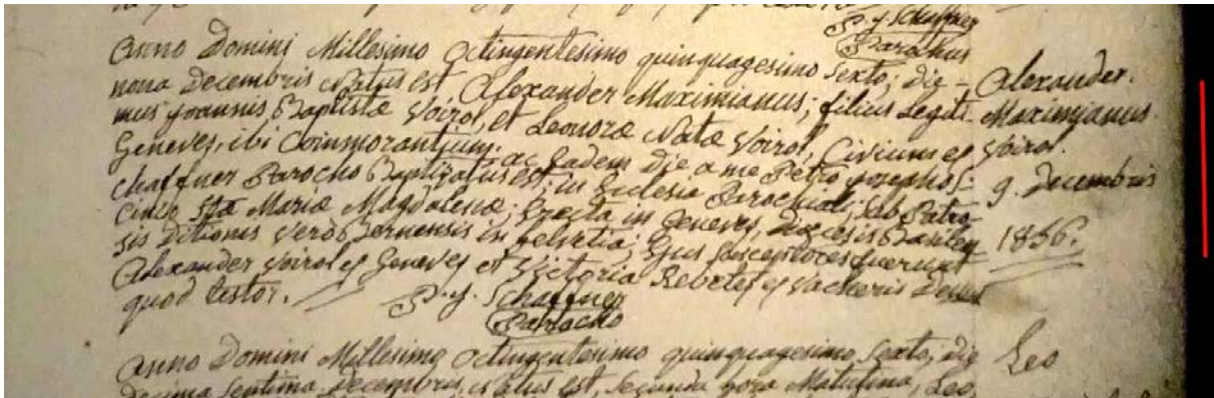 P. J. Schaffner
Parochus
Anno Domini Millesimo Octingentesimo quinquagesimo Sexto; die - Alexander.
nona Decembris Natus est Alexander Maximianus; filius Legiti- Maximianus
mus Joannis Baptistæ Voirol, et Leonoræ Natæ Voirol, Civium ex Voirol.
Geneves, ibi Commorantium. ac Eadem die a me Petro Josepho S- 9. Decembris
chaffner Parocho Baptizatus est; in Ecclesia Parochiali; Sub Patro-
cinio Stæ Mariæ Magdalenæ; Erecta in Geneves, Diœcesis Basileen 1856.
sis Ditionis verò Bernensis in helvetia; Ejus Susceptores fuerunt
Alexander Voirol ex Geneves et Victoria Rebetez ex
quod testor. P. J. Schaffner
Parocho
Anno Domini Millesimo Octingentesimo quinquagesimo Sexto; die Leo
Decima Septima Decembris, Natus est, Secunda hora Matutina, Leo,